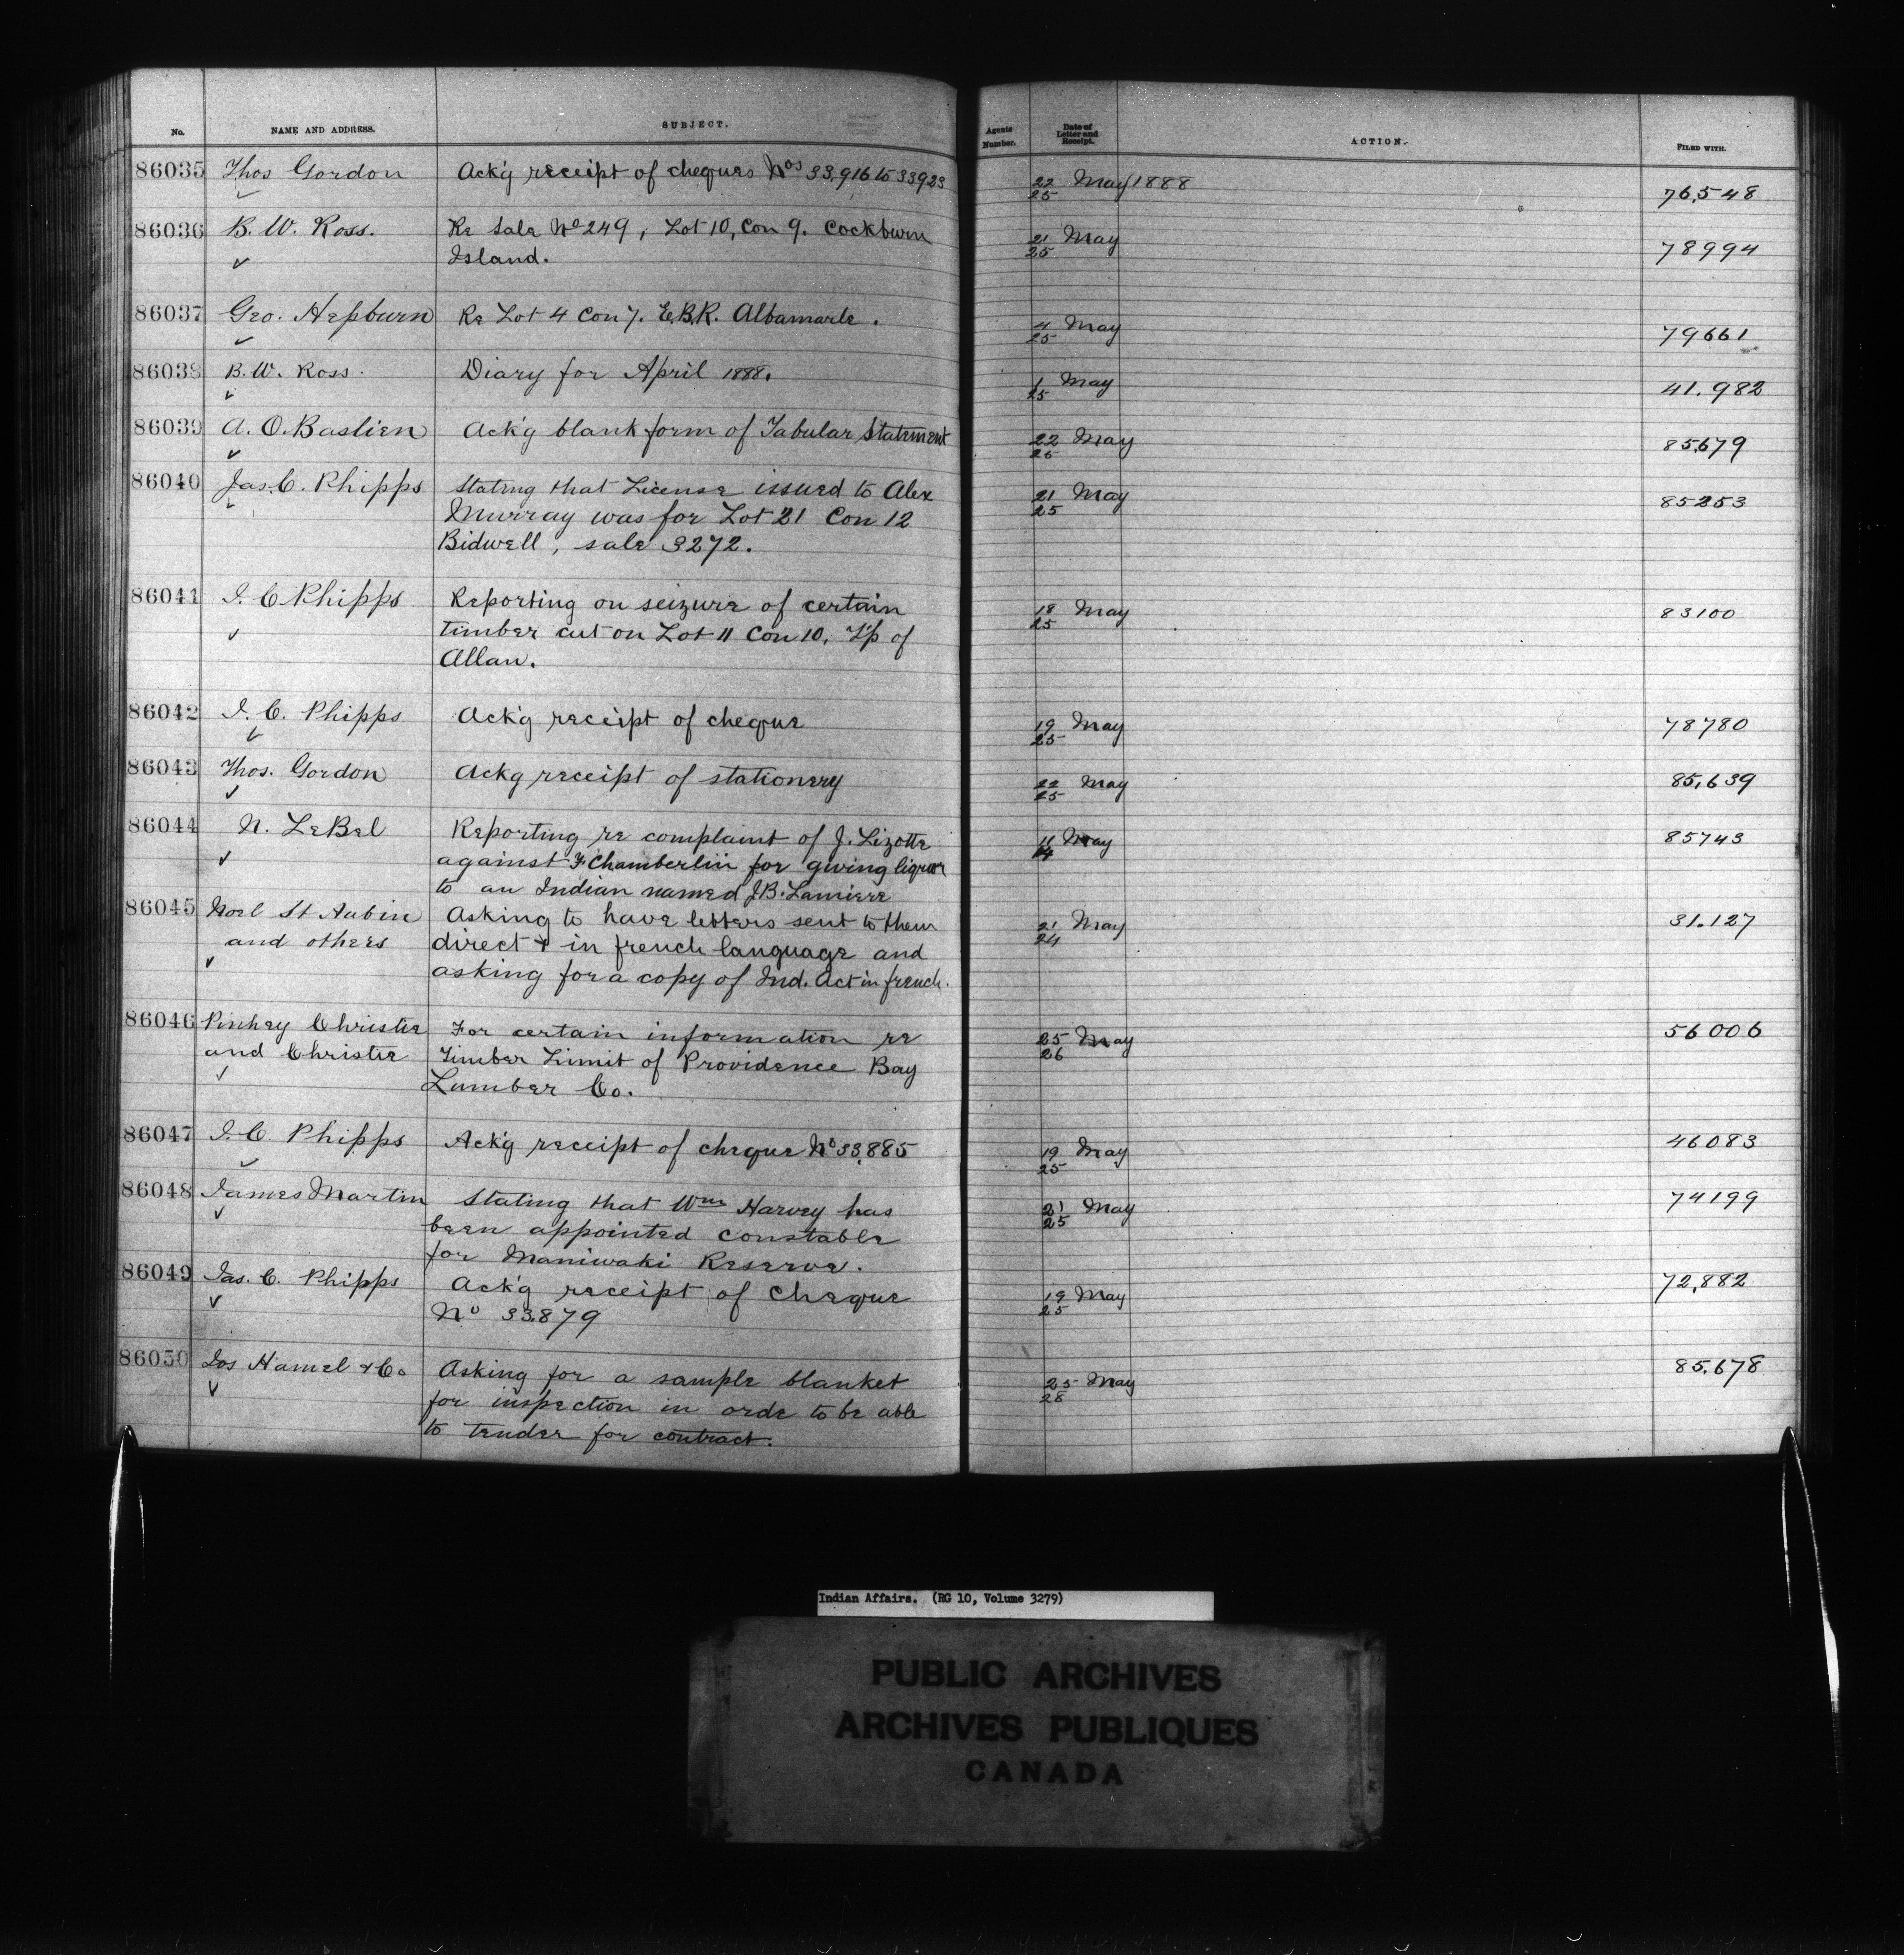 No. NAME AND ADDRESS. SUBJECT. Agents Number. Date of Letter and Receipt. ACTION. FILED WITH.
86035 Thos Gordon Ack'g receipt of cheques Nos 33,916 to 33923 22/25 May 1888 76,548
86036 B. W. Ross. Re Sale No 249, Lot 10, Con 9. Cockburn 21/25 May 78994
Island.
86037 Geo. Hepburn Re Lot 4 Con 7. E.B.R. Albamarle. 4/25 May 79661
86038 B. W. Ross. Diary for April 1888. 1/25 May 41.982
86039 A. O. Bastien Ack'g blank form of Tabular Statement 22/25 May 85,679
86040 Jas. C. Phipps Stating that License issued to Alex 21/25 May 85253
Murray was for Lot 21 Con 12
Bidwell, sale 3272.
86041 J. C Phipps Reporting on seizure of certain 18/25 May 83100
timber cut on Lot 11 Con 10, T'p of
Allan.
86042 J. C. Phipps Ack'g receipt of cheque 19/25 May 78780
86043 Thos. Gordon Ackg receipt of stationery 22/25 May 85,639
86044 N. LeBel Reporting re complaint of J. Lizotte 11/14 May 85743
against F. Chamberlin for giving liquor
to an Indian named J.B. Lamiere
86045 Noel St Aubin Asking to have letters sent to them 21/24 May 31.127
and others direct & in french language and
asking for a copy of Ind. Act in french.
86046 Pinhey Christie For certain information re 25/26 May 56006
and Christie Timber Limit of Providence Bay
Lumber Co.
86047 J. C. Phipps Ack'g receipt of cheque No 33,885 19/25 May 46083
86048 James Martin Stating that Wm Harvey has 21/25 May 74199
been appointed constable
for Maniwaki Reserve.
86049 Jas. C. Phipps Ack'g receipt of Cheque 19/25 May 72,882
No 33,879
86050 Jos Hamel & Co Asking for a sample blanket 25/28 May 85,678
for inspection in orde to be able
to tender for contract.
Indian Affairs. (RG 10, Volume 3279)
PUBLIC ARCHIVES
ARCHIVES PUBLIQUES
CANADA